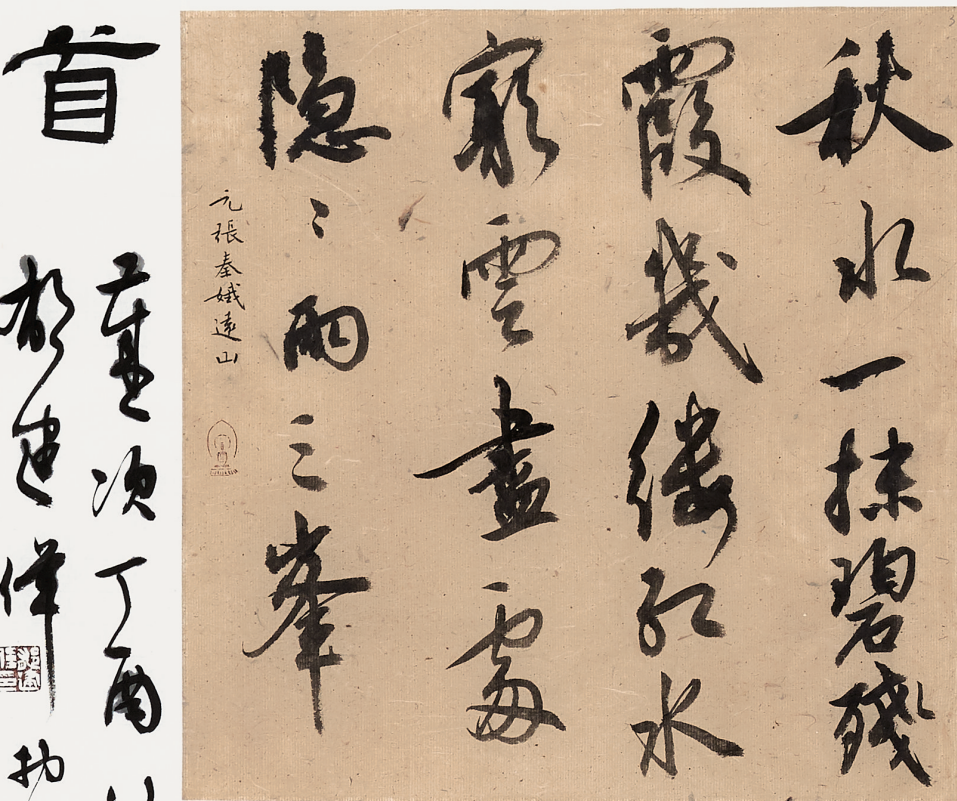 秋水一抹碧殘
霞幾縷紅水
窮雲盡處
隐〻兩三峯
元張秦娥遠山
首
歲次丁酉
建偉